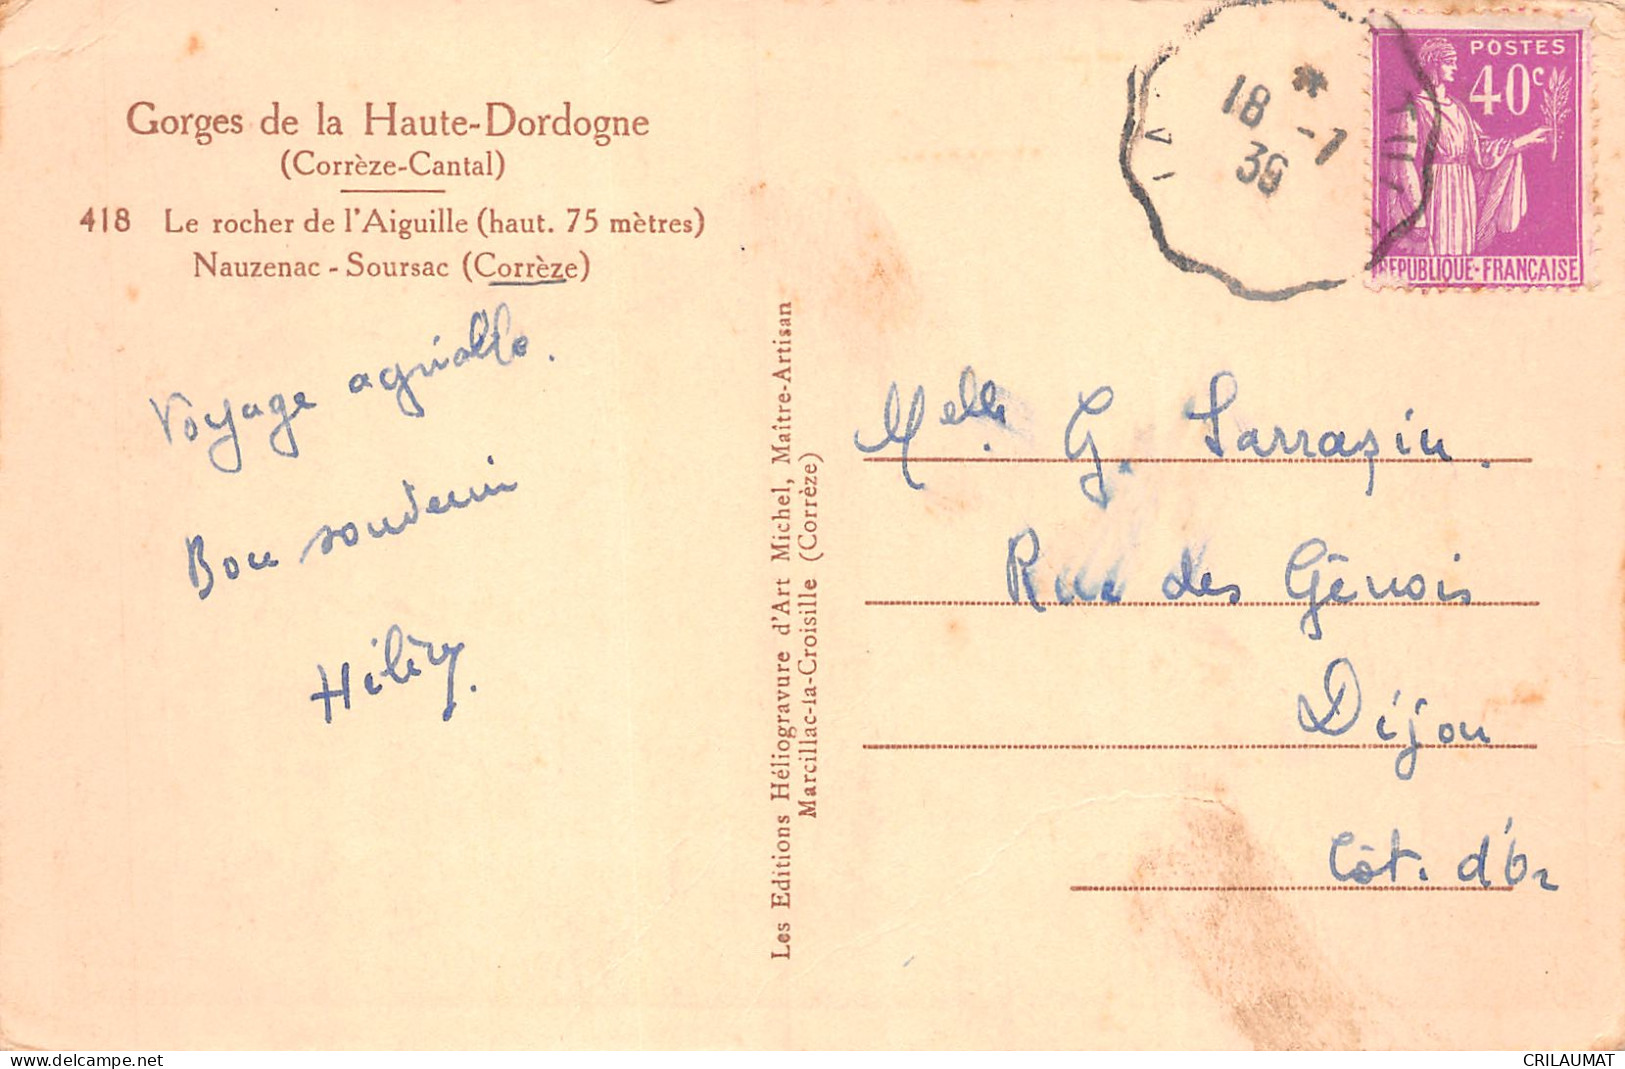 Gorges de la Haute-Dordogne
(Corrèze-Cantal)
418 Le rocher de l'Aiguille (haut. 75 mètres)
Nauzenac - Soursac (Corrèze)
Voyage agréable.
Bon souvenir
Hiléry.
Les Editions Héliogravure d'Art Michel, Maître-Artisan
Marcillac-la-Croisille (Corrèze)
18 * -7
36
POSTES
40c
REPUBLIQUE-FRANCAISE
Melle. G. Sarrazin.
Rue des Génois
Dijon
Côt. d'Or
delcampe.net
CRILAUMAT